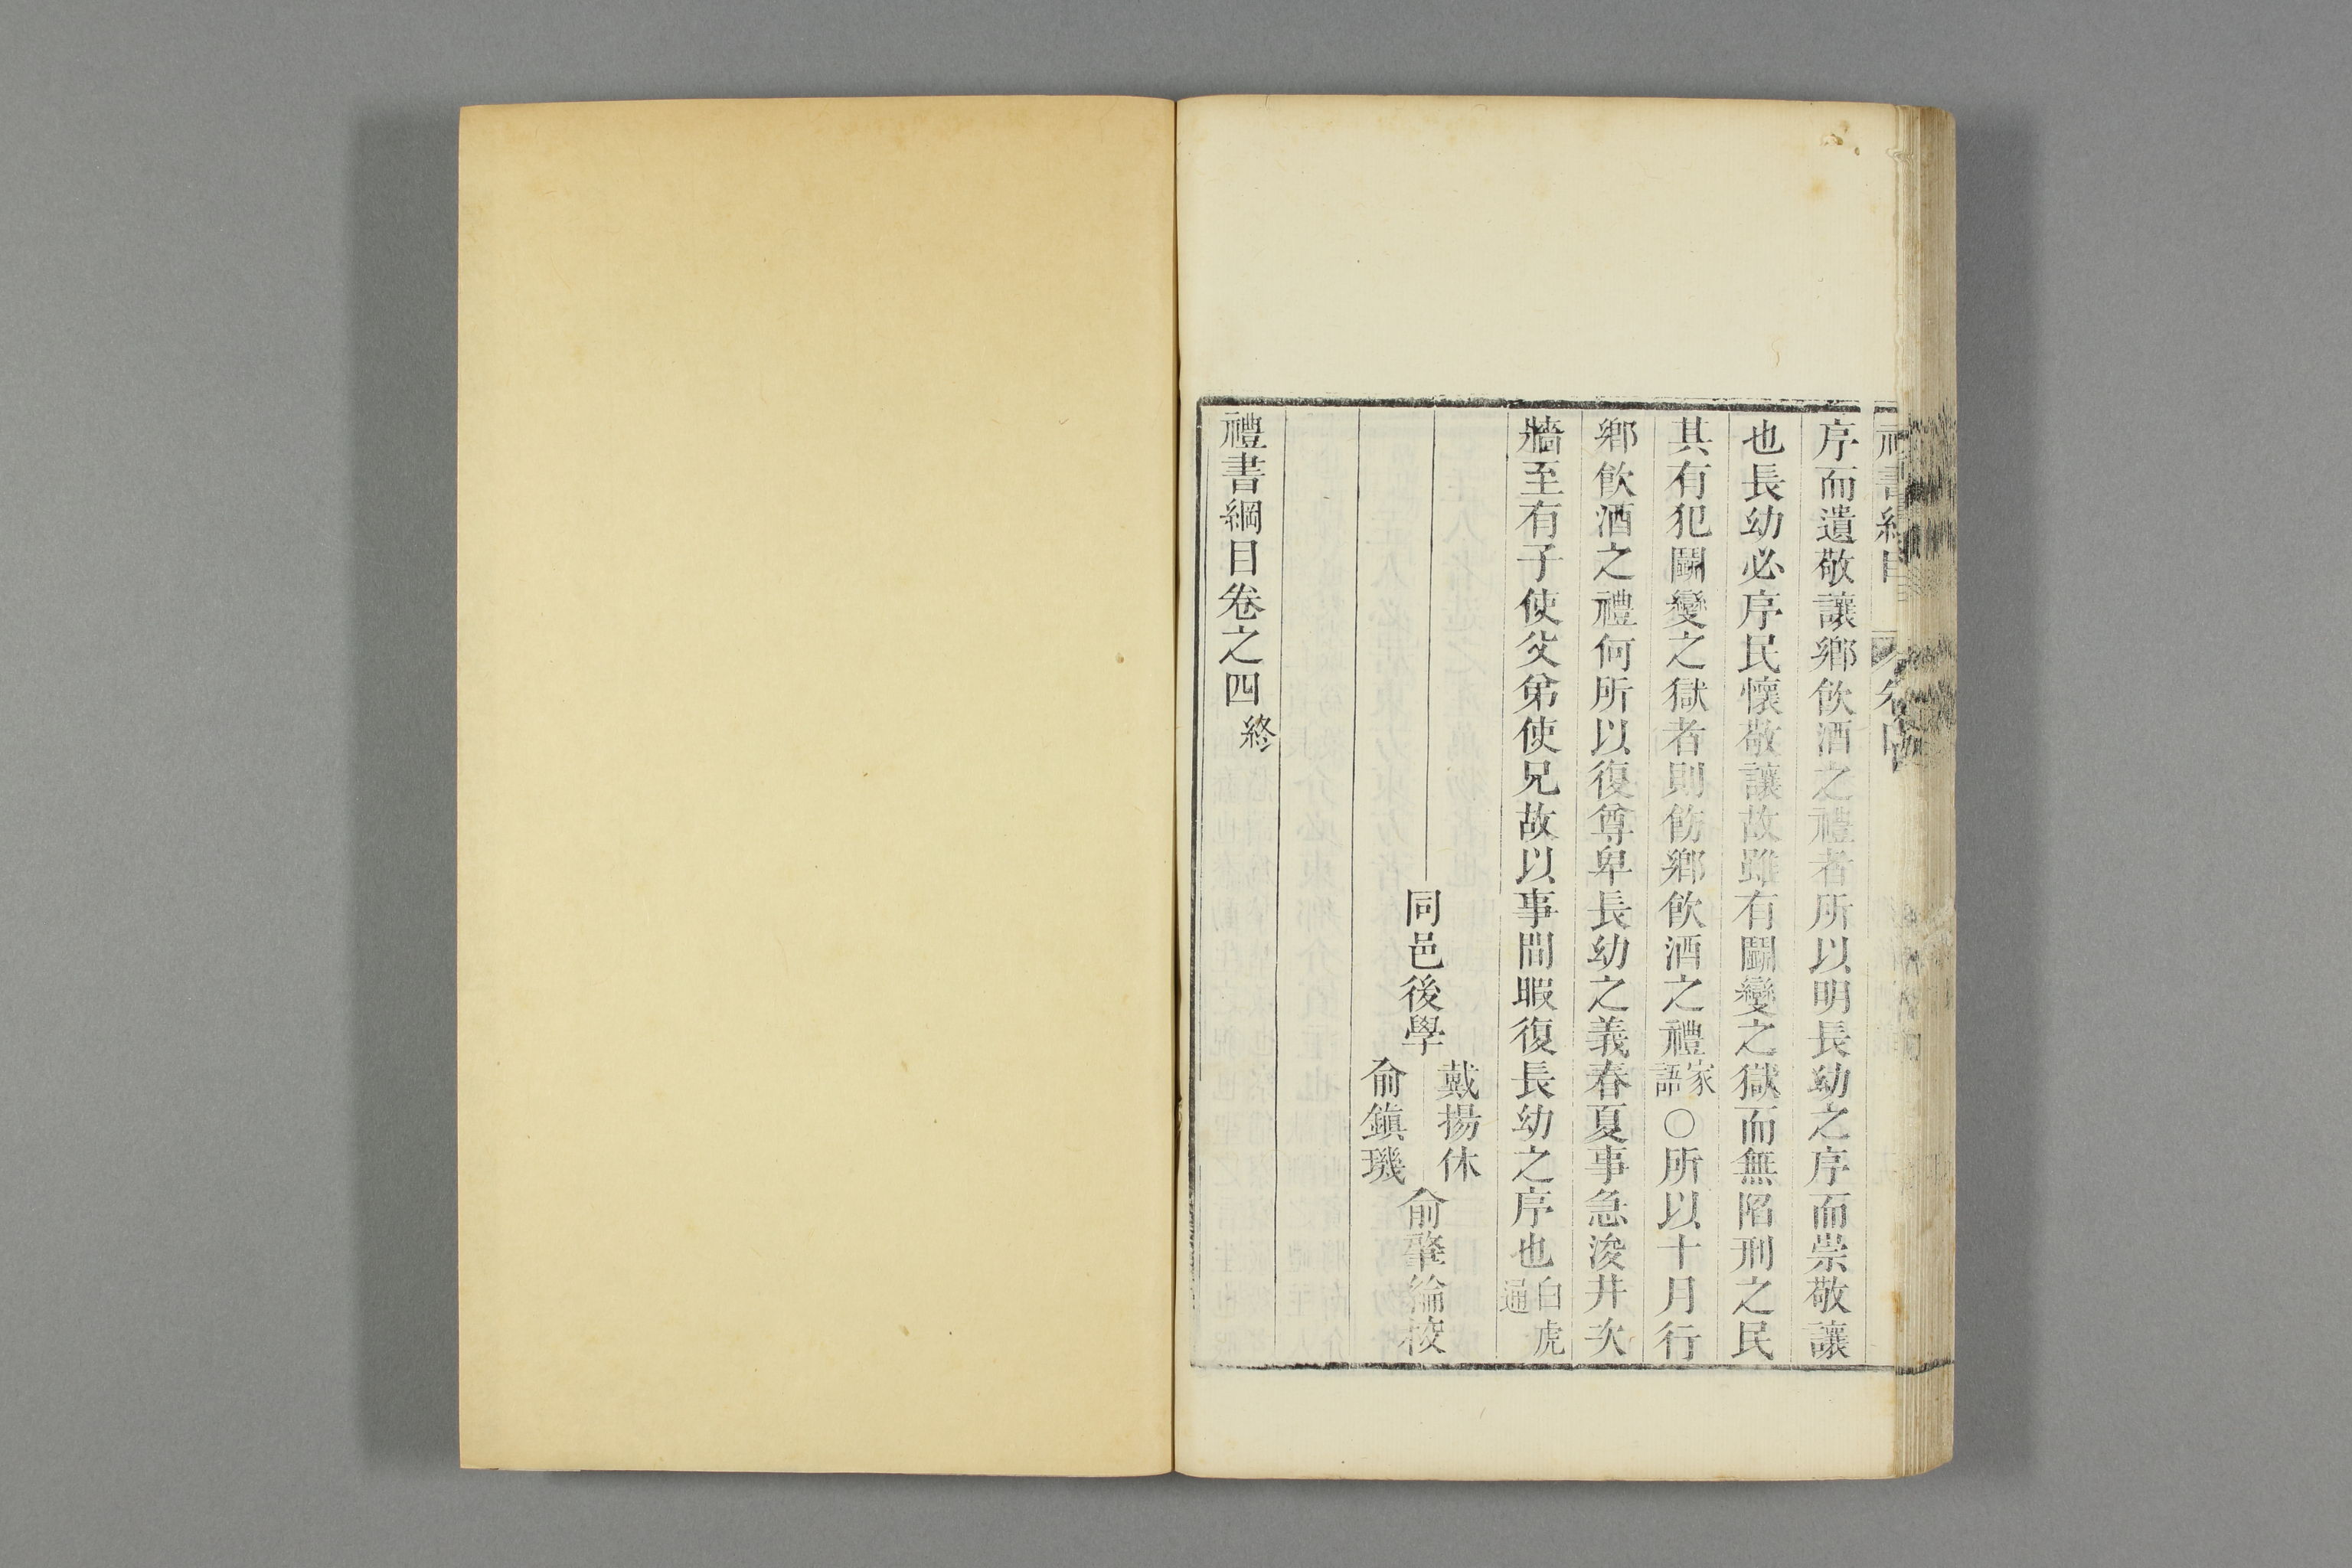 禮書綱目 卷四
序而遺敬讓鄉飲酒之禮者所以明長幼之序而崇敬讓
也長幼必序民懷敬讓故雖有鬭變之獄而無陷刑之民
其有犯鬭變之獄者則飭鄉飲酒之禮家語○所以十月行
鄉飲酒之禮何所以復尊卑長幼之義春夏事急浚井次
牆至有子使父弟使兄故以事閒暇復長幼之序也白虎通
同邑後學 戴揚休 俞鎮璣 俞肇綸校
禮書綱目卷之四終